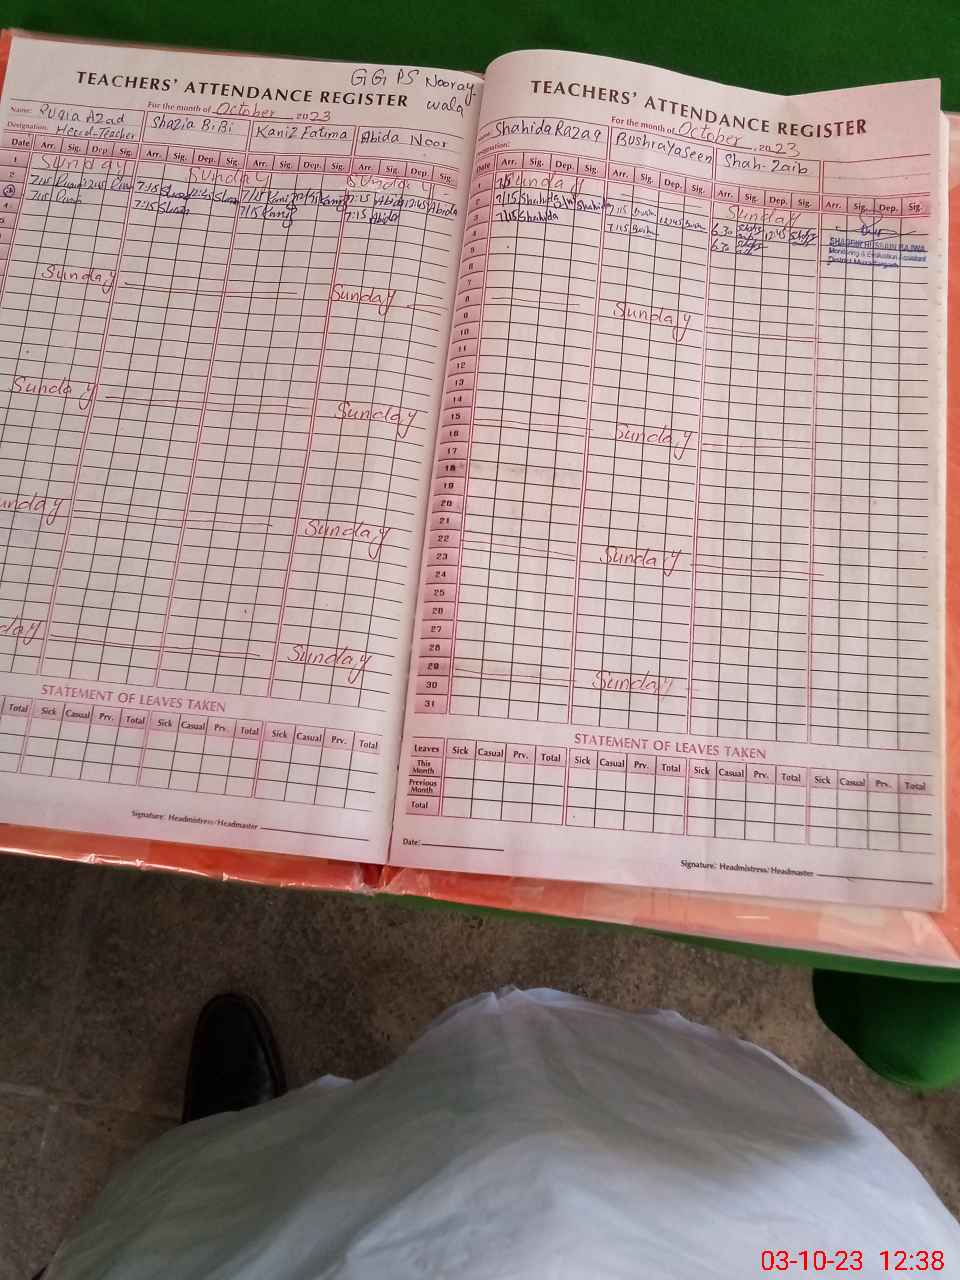 GG PS Nooray wala
TEACHERS' ATTENDANCE REGISTER
For the month of October 2023
Name: Ruqia Azad Shazia BiBi Kaniz Fatima Abida Noor
Designation: Head-Teacher
Date Arr. Sig. Dep. Sig. Arr. Sig. Dep. Sig. Arr. Sig. Dep. Sig. Arr. Sig. Dep. Sig.
1 Sunday Sunday Sunday
2 7:15 12:45 7:15 12:45 7:15 12:45 7:15 Abida 12:45 Abida
3 7:15 7:15 7:15 7:15 Abida
4
5
Sunday Sunday
Sunday Sunday
Sunday Sunday
Sunday
STATEMENT OF LEAVES TAKEN
Total Sick Casual Prv. Total Sick Casual Prv. Total Sick Casual Prv. Total
Signature: Headmistress/Headmaster
TEACHERS' ATTENDANCE REGISTER
For the month of October 2023
Name: Shahida Razaq Bushra Yaseen Shah-Zaib
Designation:
Date Arr. Sig. Dep. Sig. Arr. Sig. Dep. Sig. Arr. Sig. Dep. Sig. Arr. Sig. Dep. Sig.
1 Sunday Sunday
2 7:15 Shahida Shahida 7:15 Bush 12:45 Bush 6:30 12:45
3 7:15 Shahida 7:15 Bush 6:30
SHABBIR HUSSAIN
Monitoring & Evaluation Assistant
District
4
5
6
7
8 Sunday
9
10
11
12
13
14
15 Sunday
16
17
18
19
20
21
22 Sunday
23
24
25
26
27
28
29 Sunday
30
31
STATEMENT OF LEAVES TAKEN
Leaves Sick Casual Prv. Total Sick Casual Prv. Total Sick Casual Prv. Total Sick Casual Prv. Total
This Month
Previous Month
Total
Date:
Signature: Headmistress/Headmaster
03-10-23 12:38